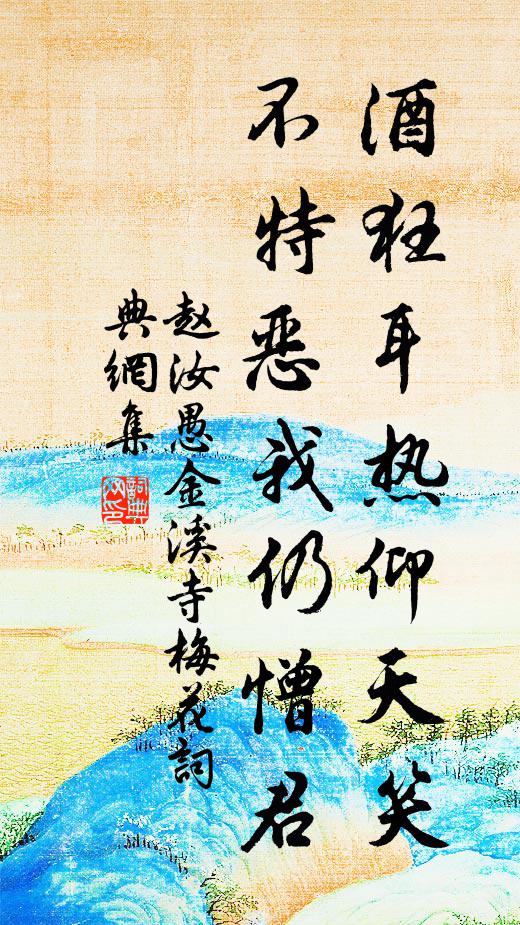 酒狂耳热仰天笑
不特恶我仍憎君
赵汝愚金溪寺梅花詞
典網集
詞典